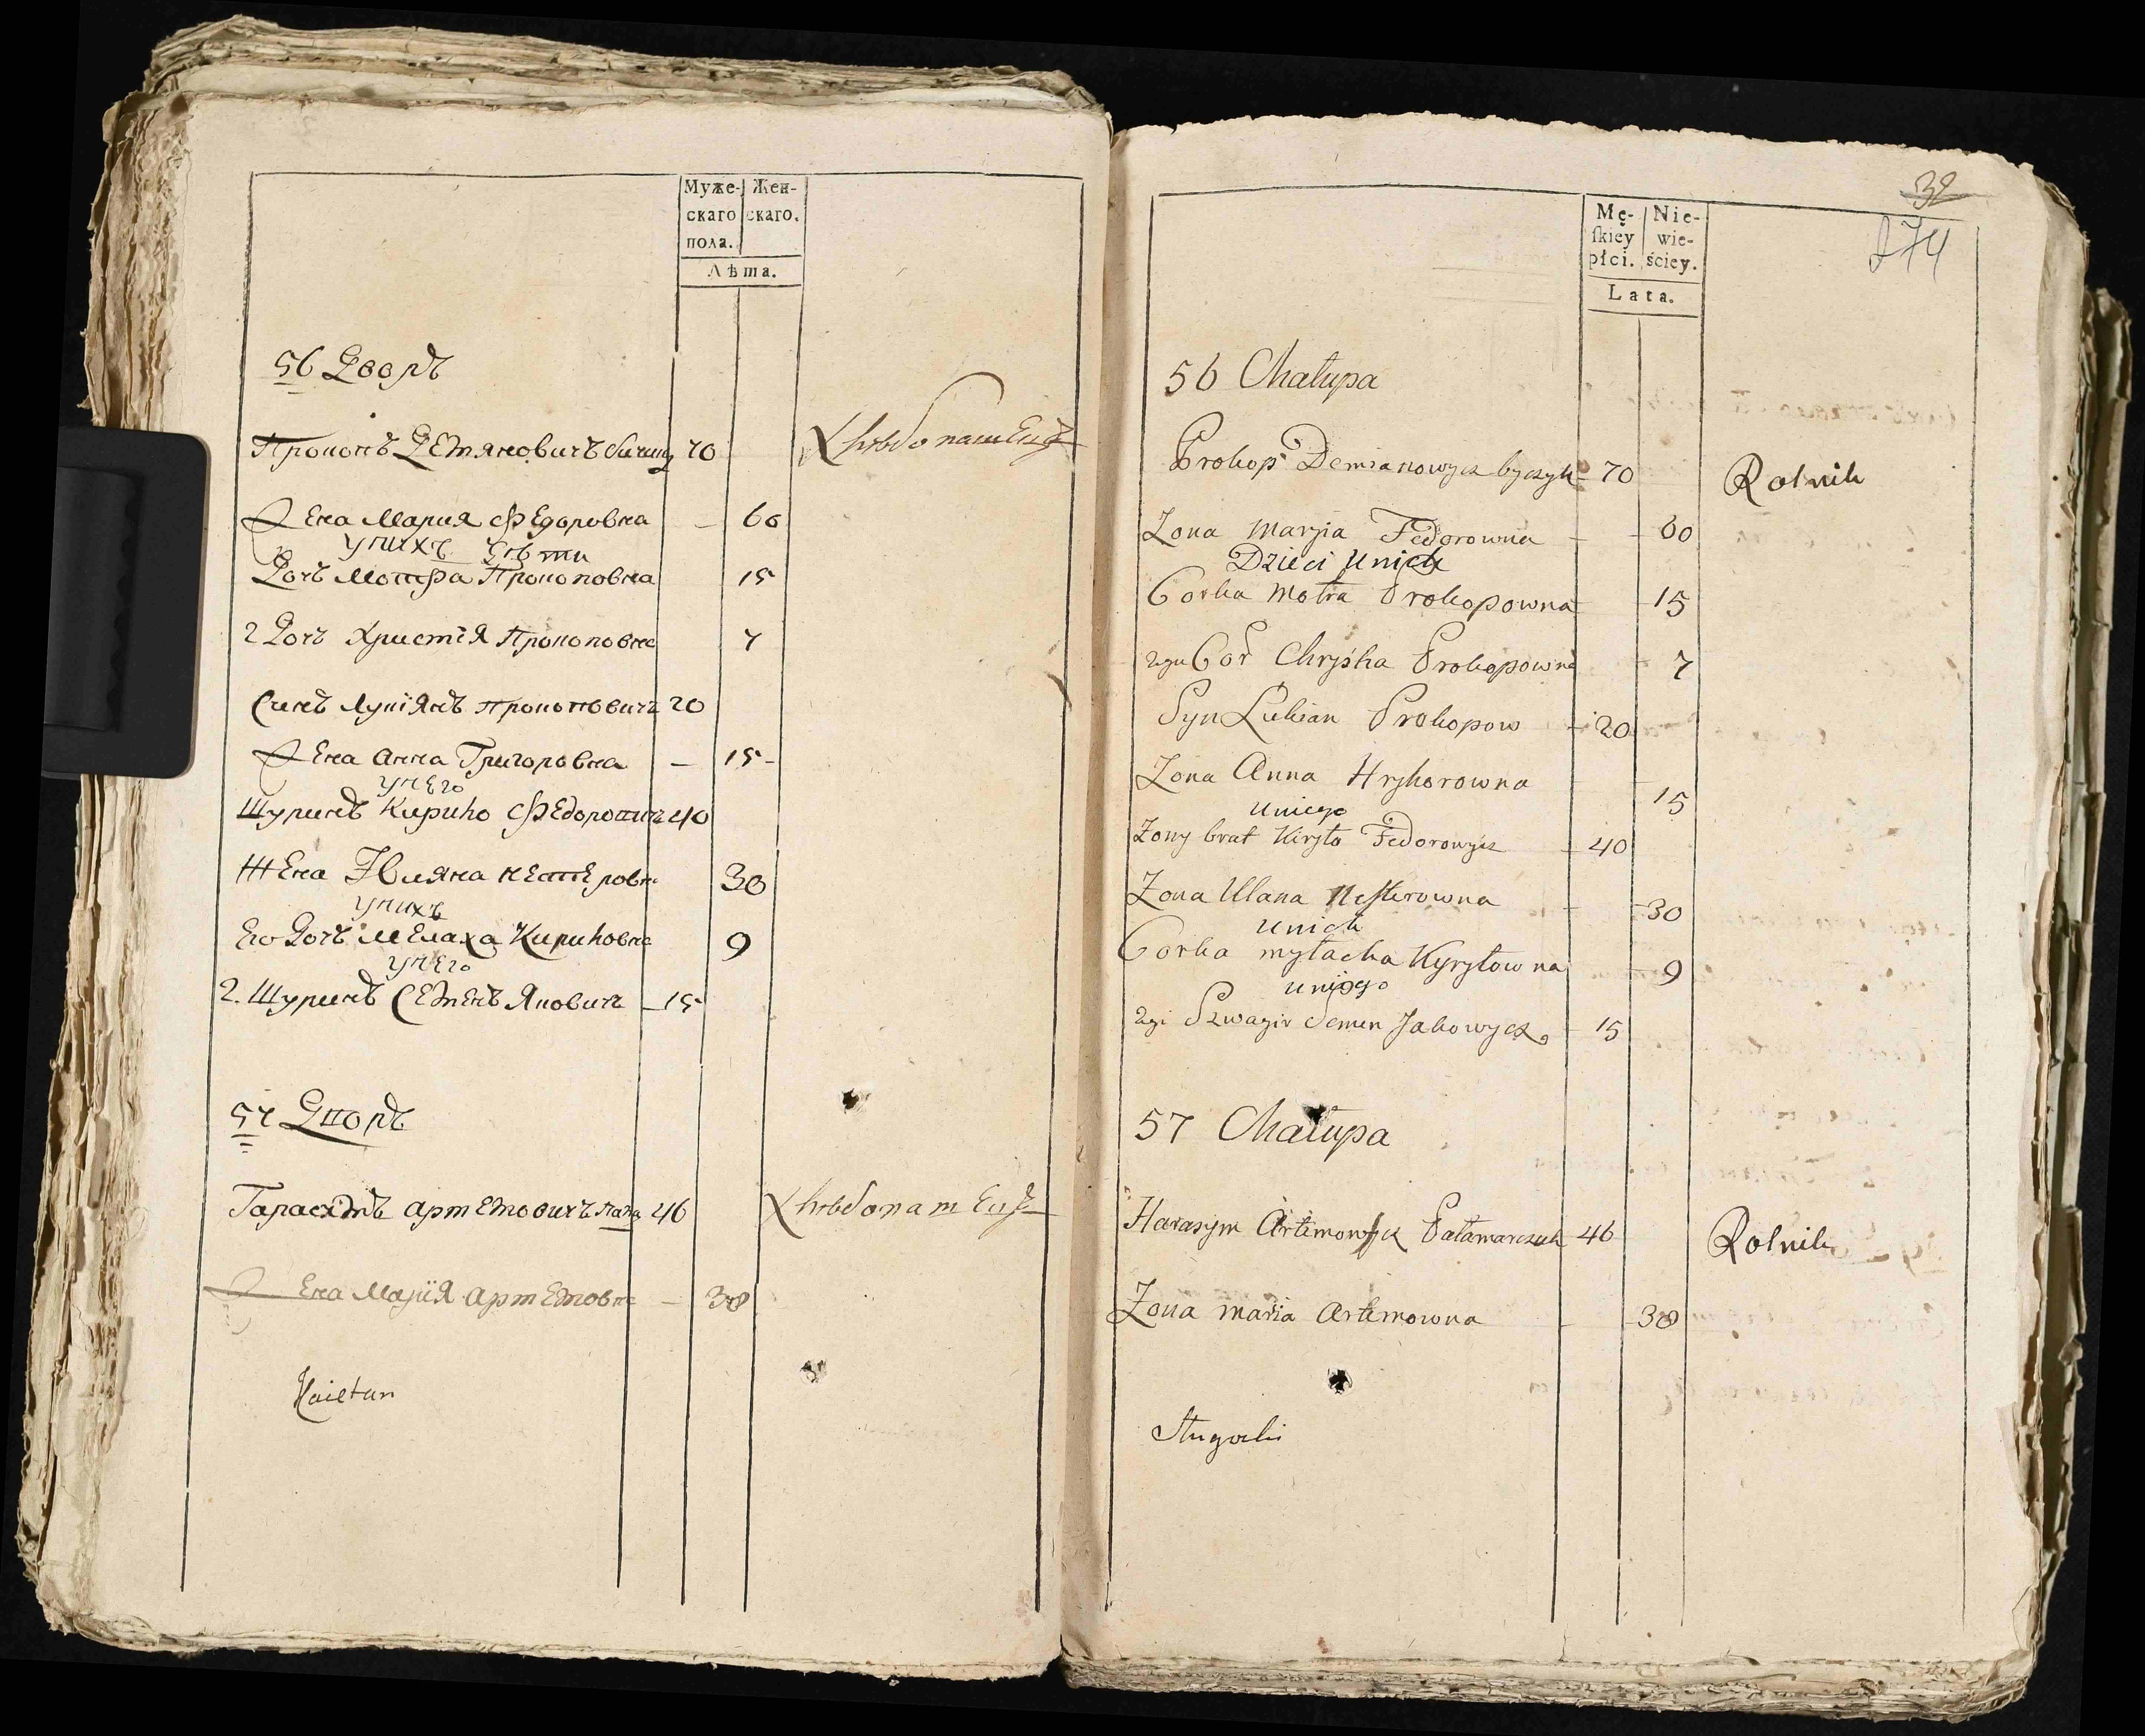 Муже- Жен-
скаго скаго.
пола.
Лѣта.
56 Дворъ
Прокопъ Демяновичъ бичик 70 Хлѣбопашецъ
Жена Мария Федоровна – 60
у нихъ дѣти
Дочъ Мотра Прокоповна 15
2 Дочъ Христія Прокоповна 7
Синъ Лукіянъ Прокоповичъ 20
Жена Анна Григоровна – 15 -
у него
Шуринъ Кирило Федоровичъ 40
Жена Уляна Нестеровна 30
у нихъ
Его Дочъ Мелаха Кириловна 9
у него
2. Шуринъ Семенъ Яковичъ – 15
57 Дворъ
Гарасимъ Артемовичъ Пала 46 Хлѣбопашецъ
Жена Марія Артемовна – 38
Kaietan
32
274
Mę- Nie-
ſkiey wie-
płci. ściey.
Lata.
56 Chałupa
Prokop Demianowycz byczyk - 70 Rolnik
Zona Maryia Fedorowna - - 60
Dzieci u nich
Corka Motra Prokopowna - 15
2ga Cor Chryśka Prokopowna - 7
Syn Lukian Prokopow - 20
Zona Anna Hryhorowna 15
u niego
Zony brat Kiryło Fedorowycz - 40
Zona Ulana Nesterowna - 30
u nich
Corka myłacha Kyryłowna - 9
u niego
2gi Szwagir Semen Jakowycz - 15
57 Chałupa
Harasym Artemowycz Pałamarczuk 46 Rolnik
Zona maria Artemowna - - 38
Sługocki